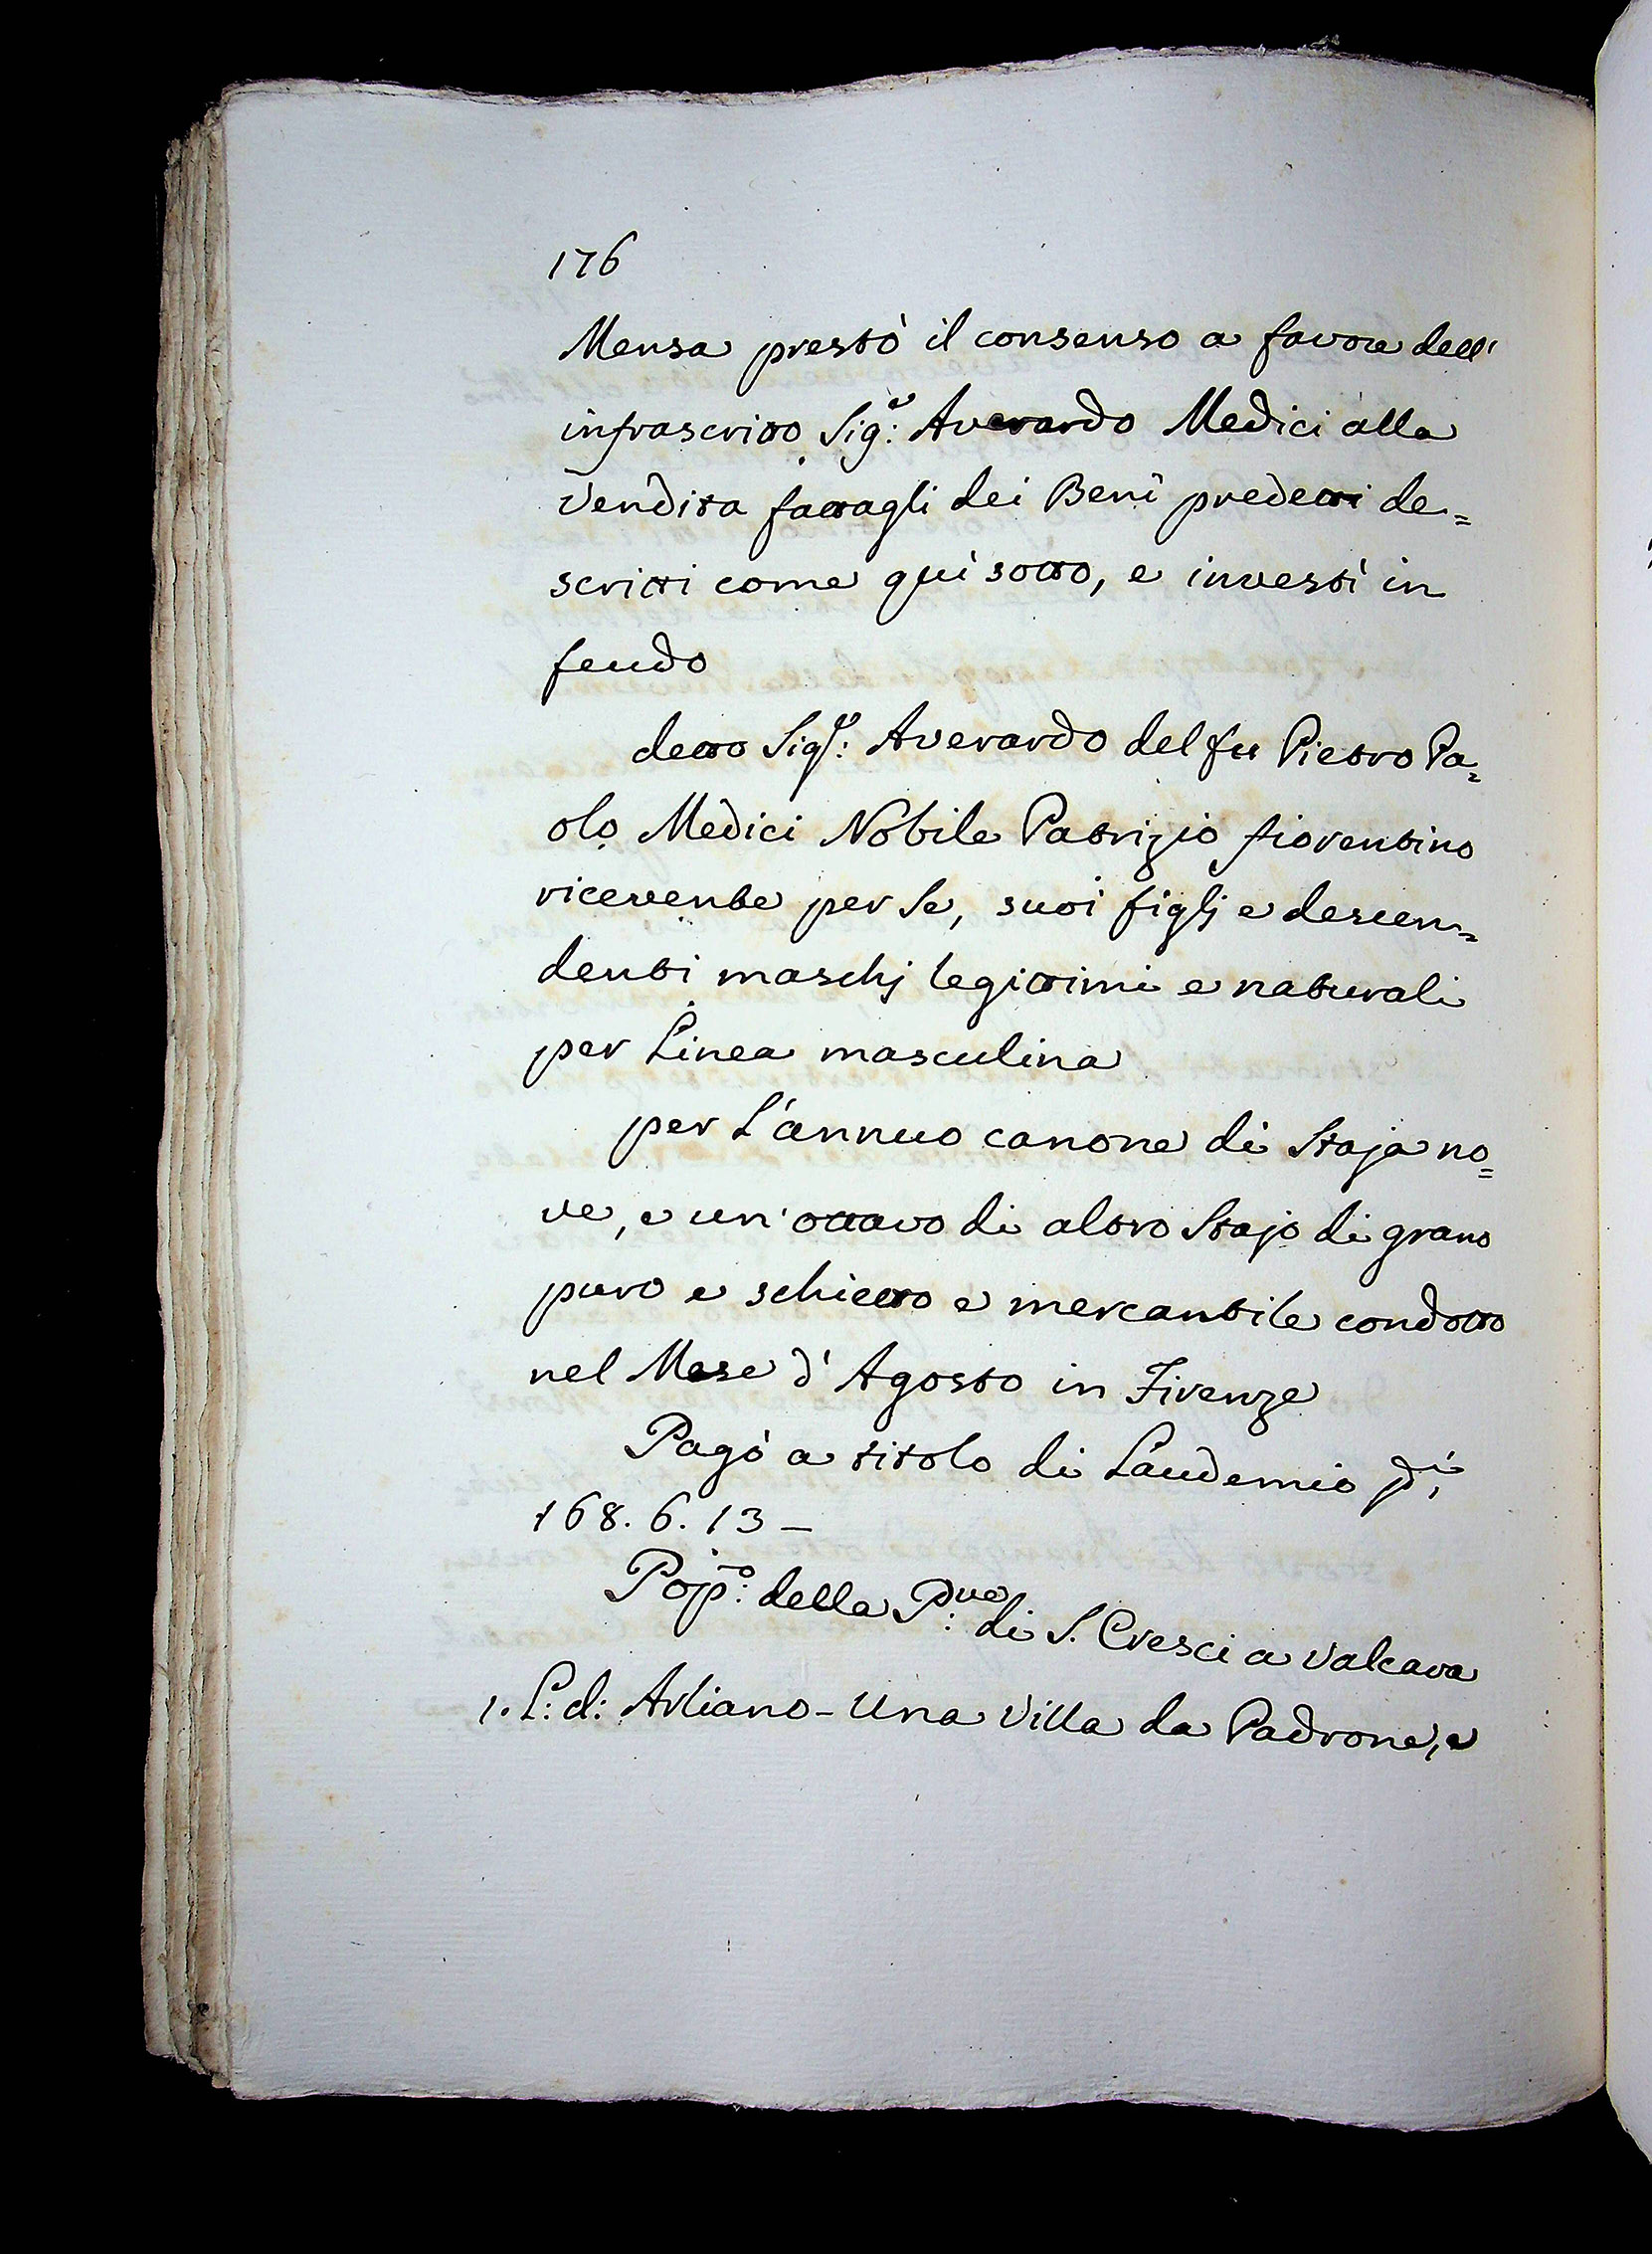 176
Mensa prestò il consenso a favore dell'
infrascritto Sig.e Averardo Medici alla
Vendita fattagli dei Beni predetti de=
scritti come quì sotto, e investì in
feudo
detto Sig.e: Averardo del fu Pietro Pa=
olo Medici Nobile Patrizio fiorentino
ricevente per Se, suoi figlj e descen=
denti maschj legittimi e naturali
per Linea masculina
per L'annuo canone di Staja no=
ve, e un'ottavo di altro Stajo di grano
puro e schietto e mercantile condotto
nel Mese d'Agosto in Firenze
Pagò a titolo di Laudemio
168. 6. 13 –
Pop.o: della P.ve: di S. Cresci a Valcava
1. L: d: Arliano – Una Villa da Padrone, e